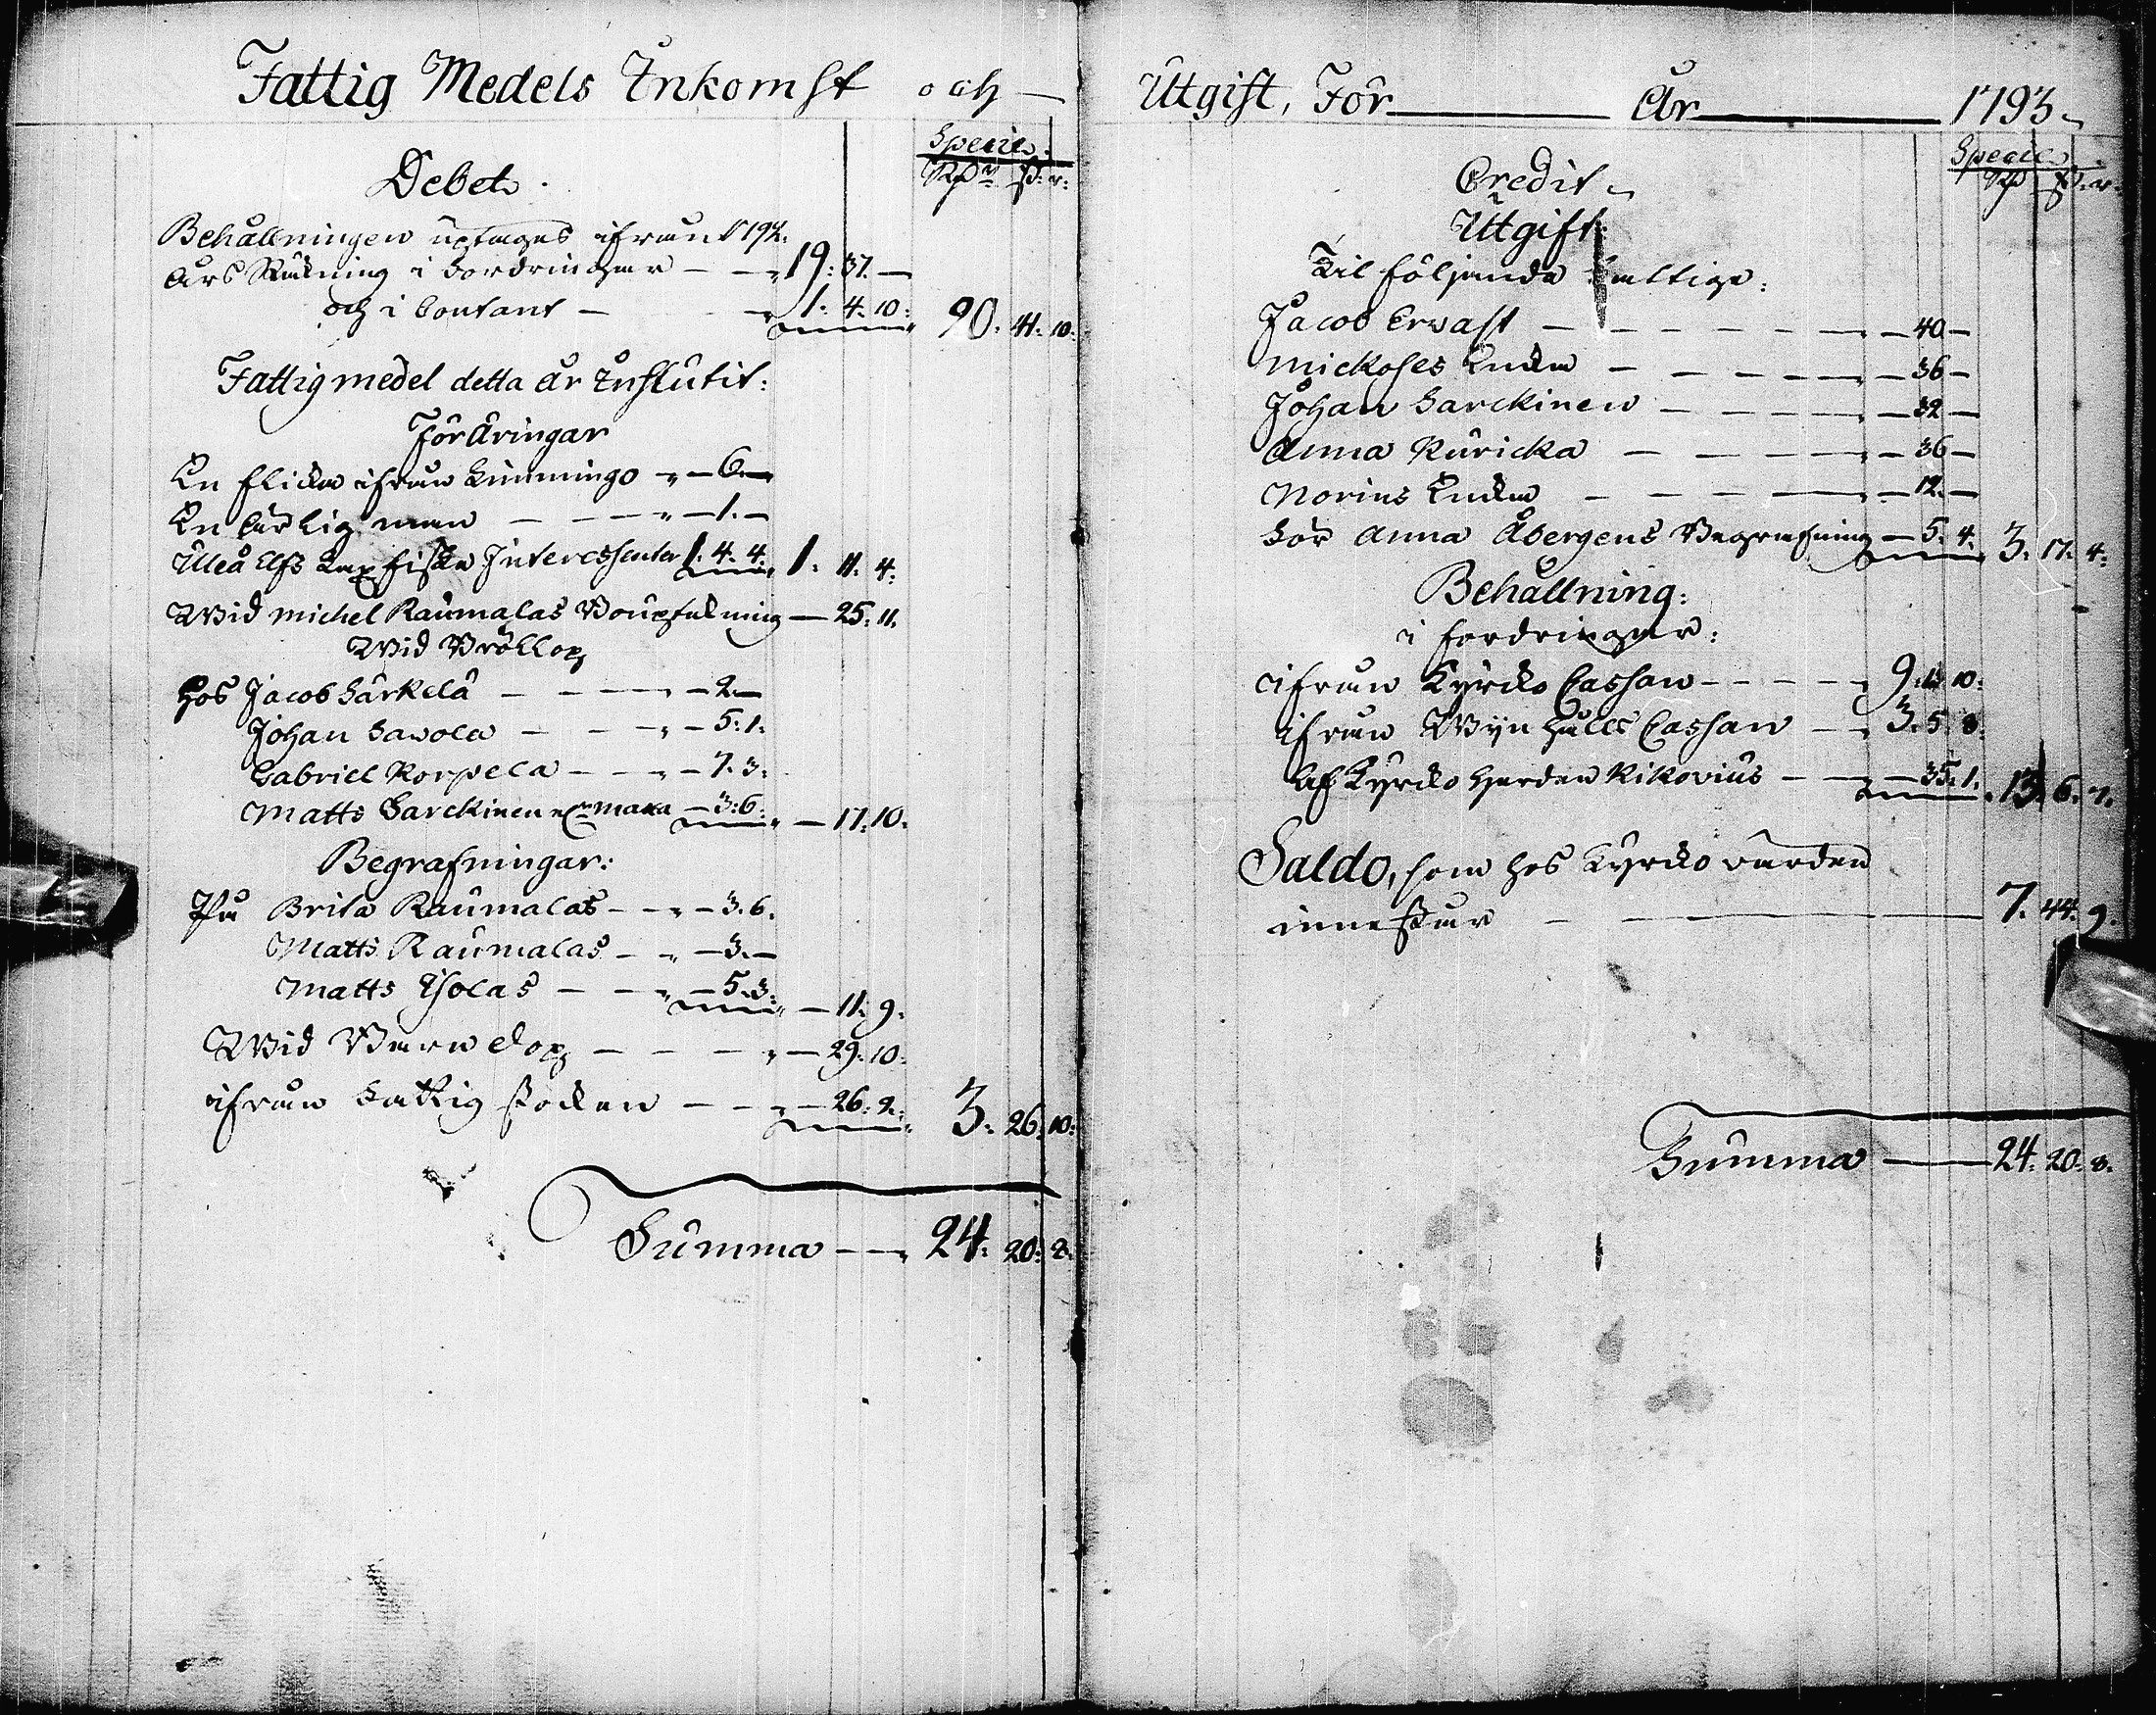 Fattig Medels Inkomst och —
Debet.
Specie.
Rdr ß: r:
Behållningen uptages ifrån 1792.
Års Räkning i Fordringar — — „ 19: 37. —
och i Contant — „ 1. 4. 10: 20: 41: 10:
Fattigmedel detta år Influtit:
Föräringar
En flicka ifrån Kimmingo „ — 6. —
En ärlig man — — — „ — 1. —
Uleå Elfs Laxfiske Interessenter 1. 4. 4: 1. 11. 4:
Wid Michel Raumalas Bouptekning — 25: 11.
Wid Bröllop
hos Jacob Särkelä — — — — 2. —
Johan Savola — — „ — 5: 1.
Gabriel Korpela — — „ — 7. 3:
Matts Sarckinen — 3: 6: „ — 17: 10.
Begrafningar:
På Brita Raumalas — — „ — 3. 6.
Matts Raumalas — „ — 3. —
Matts Isolas — — „ — 5. 3: „ — 11: 9.
Wid Barndop — — — „ — 29: 10:
ifrån Fattig stocken — — „ — 26: 2: 3: 26: 10:
Summa — — „ 24: 20: 8.
Utgift, För — År — 1793.
Credit
Specie
Rd ß. r.
Utgift:
Til följande Fattige:
Jacob Ervast — — — — — — 40 —
Mickoses Enka — — — — — 36 —
Johan Sarckinen — — — — — 32 —
Anna Kuricka — — — — 36 —
Norins Enka — — — — — 12. —
För Anna Åbergens Begrafning — 5. 4: 3. 17. 4:
Behållning:
i fordringar:
ifrån Kyrcko Cassan — — — — „ 9: 13 10:
ifrån Wijnhålls Cassan — — „ 3. 5. 8:
Af Kyrcko Herden Rikovius — — „ — 35: 1. 13. 6. 7.
Saldo, som hos Kyrcko värden
innestår — — 7. 44. 9.
Summa — 24. 20. 8.